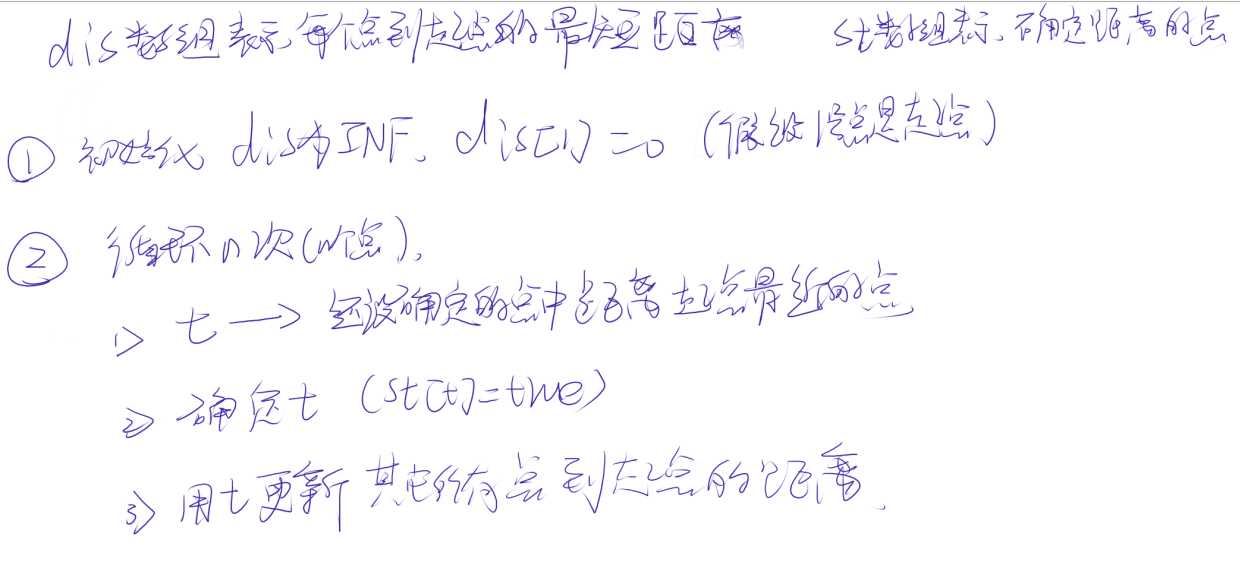 dis数组表示每个点到起点的最短距离 st数组表示确定距离的点
① 初始化 dis为INF, dis[1]=0 (假设1号点是起点)
② 循环n次(n个点),
1> t → 还没确定的点中距离起点最近的点
2> 确定t (st[t]=true)
3> 用t更新其它所有点到起点的距离.